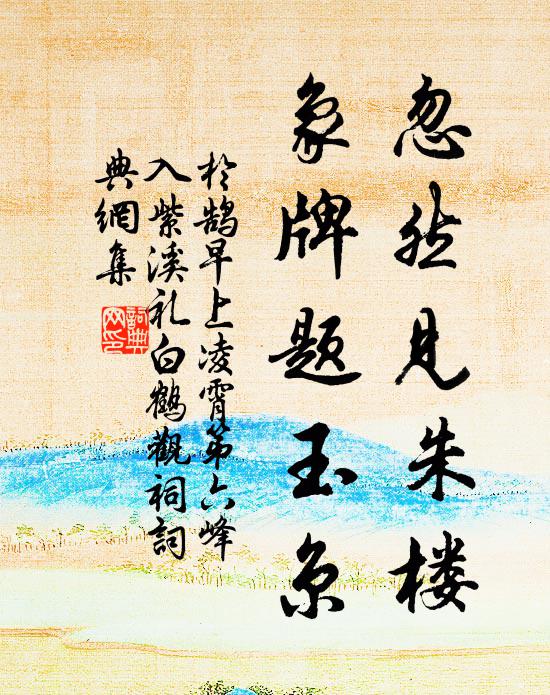 忽然见朱楼
象牌题玉京
於鹄早上凌霄第六峰
入紫溪礼白鹤觀祠詞
典網集
詞典网印